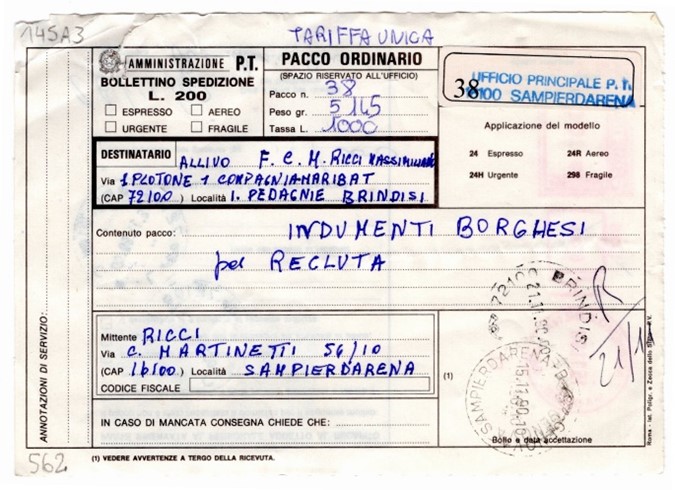 145A3
TARIFFA UNICA
AMMINISTRAZIONE P.T.
BOLLETTINO SPEDIZIONE
L. 200
ESPRESSO AEREO
URGENTE FRAGILE
PACCO ORDINARIO
(SPAZIO RISERVATO ALL'UFFICIO)
Pacco n. 38
Peso gr. 5145
Tassa L. 1000
38
UFFICIO PRINCIPALE P. T.
SAMPIERDARENA
Applicazione del modello
24 Espresso 24R Aereo
24H Urgente 298 Fragile
DESTINATARIO ALLIVO F. C. M. RICCI MASSIMILIANO
Via 1 PLOTONE 1 COMPAGNIA MARIBAT
(CAP 72100) Località I. PEDAGNE BRINDISI
Contenuto pacco: INDUMENTI BORGHESI
per RECLUTA
72100 BRINDISI
R
21/11
ANNOTAZIONI DI SERVIZIO:
Mittente RICCI
Via C. MARTINETTI 56/10
(CAP 16100) Località SAMPIERDARENA
CODICE FISCALE
(1)
SAMPIERDARENA
Bollo e data accettazione
IN CASO DI MANCATA CONSEGNA CHIEDE CHE:
562
(1) VEDERE AVVERTENZE A TERGO DELLA RICEVUTA.